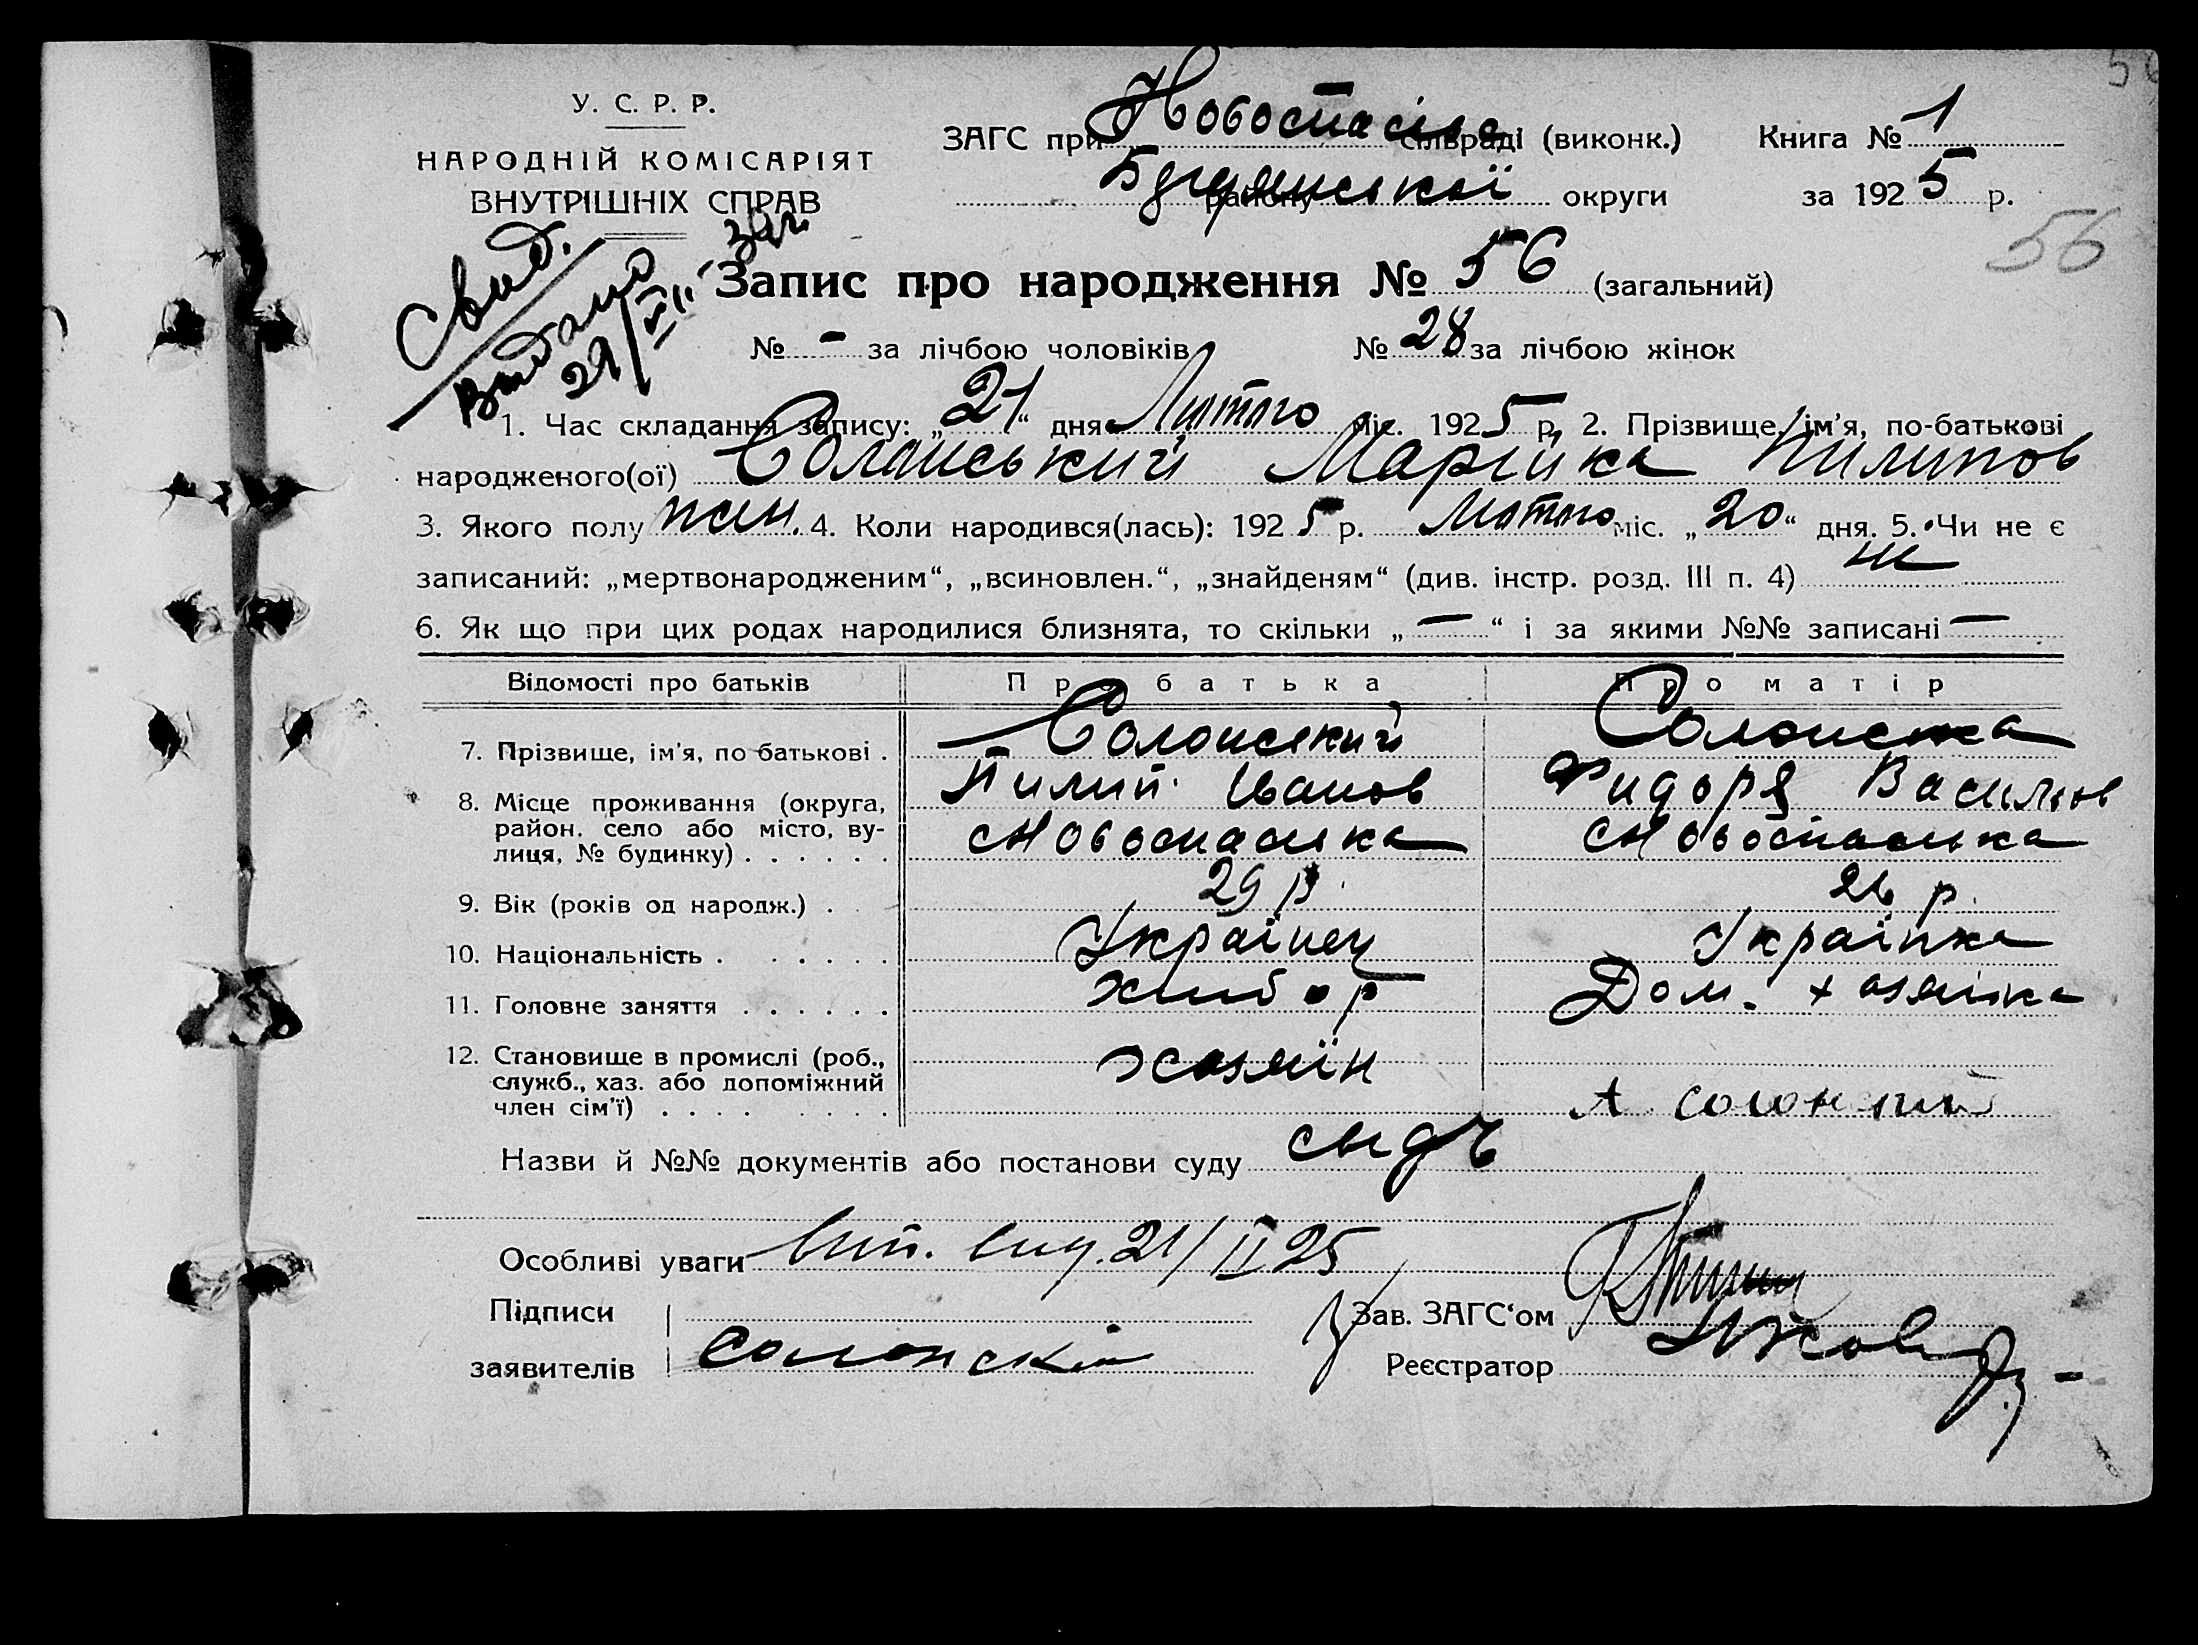 У. С. Р. Р.
НАРОДНІЙ КОМІСАРІЯТ
ВНУТРІШНІХ СПРАВ
ЗАГС при сільраді (виконк.) Книга № 1
району округи за 1925 р.
56
Свид.
Видано
29/VII
Запис про народження № 56 (загальний)
№ - за лічбою чоловіків № 28 за лічбою жінок
1. Час складання запису: „21“ дня Лютого міс. 1925 р. 2. Прізвище, ім'я, по-батькові
народженого(ої) Солонський Марійка Пилипов
3. Якого полу жен. 4. Коли народився(лась): 1925 р. Лютого міс. „20“ дня. 5. Чи не є
записаний: „мертвонародженим“, „всиновлен.“, „знайденям“ (див. інстр. розд. III п. 4) ні
6. Як що при цих родах народилися близнята, то скільки „—“ і за якими №№ записані —
Відомості про батьків Про батька Про матір
7. Прізвище, ім'я, по батькові . Солонський Солонська
Пилип Іванов Фидоря Василов
8. Місце проживання (округа, район. село або місто, вулиця, № будинку) . . . . . . с Новоспаська с Новоспаська
9. Вік (років од народж.) . 29 р. 26 р.
10. Національність . . . . . . Українец Українка
11. Головне заняття . . . . . . Хлибор Дом. хазяйка
12. Становище в промислі (роб., служб., хаз. або допоміжний член сім'ї) . . . . . . . . хозяїн
Назви й №№ документів або постанови суду
Особливі уваги 21/II 25
Підписи Зав. ЗАГС‘ом
заявителів Солонскій Реєстратор